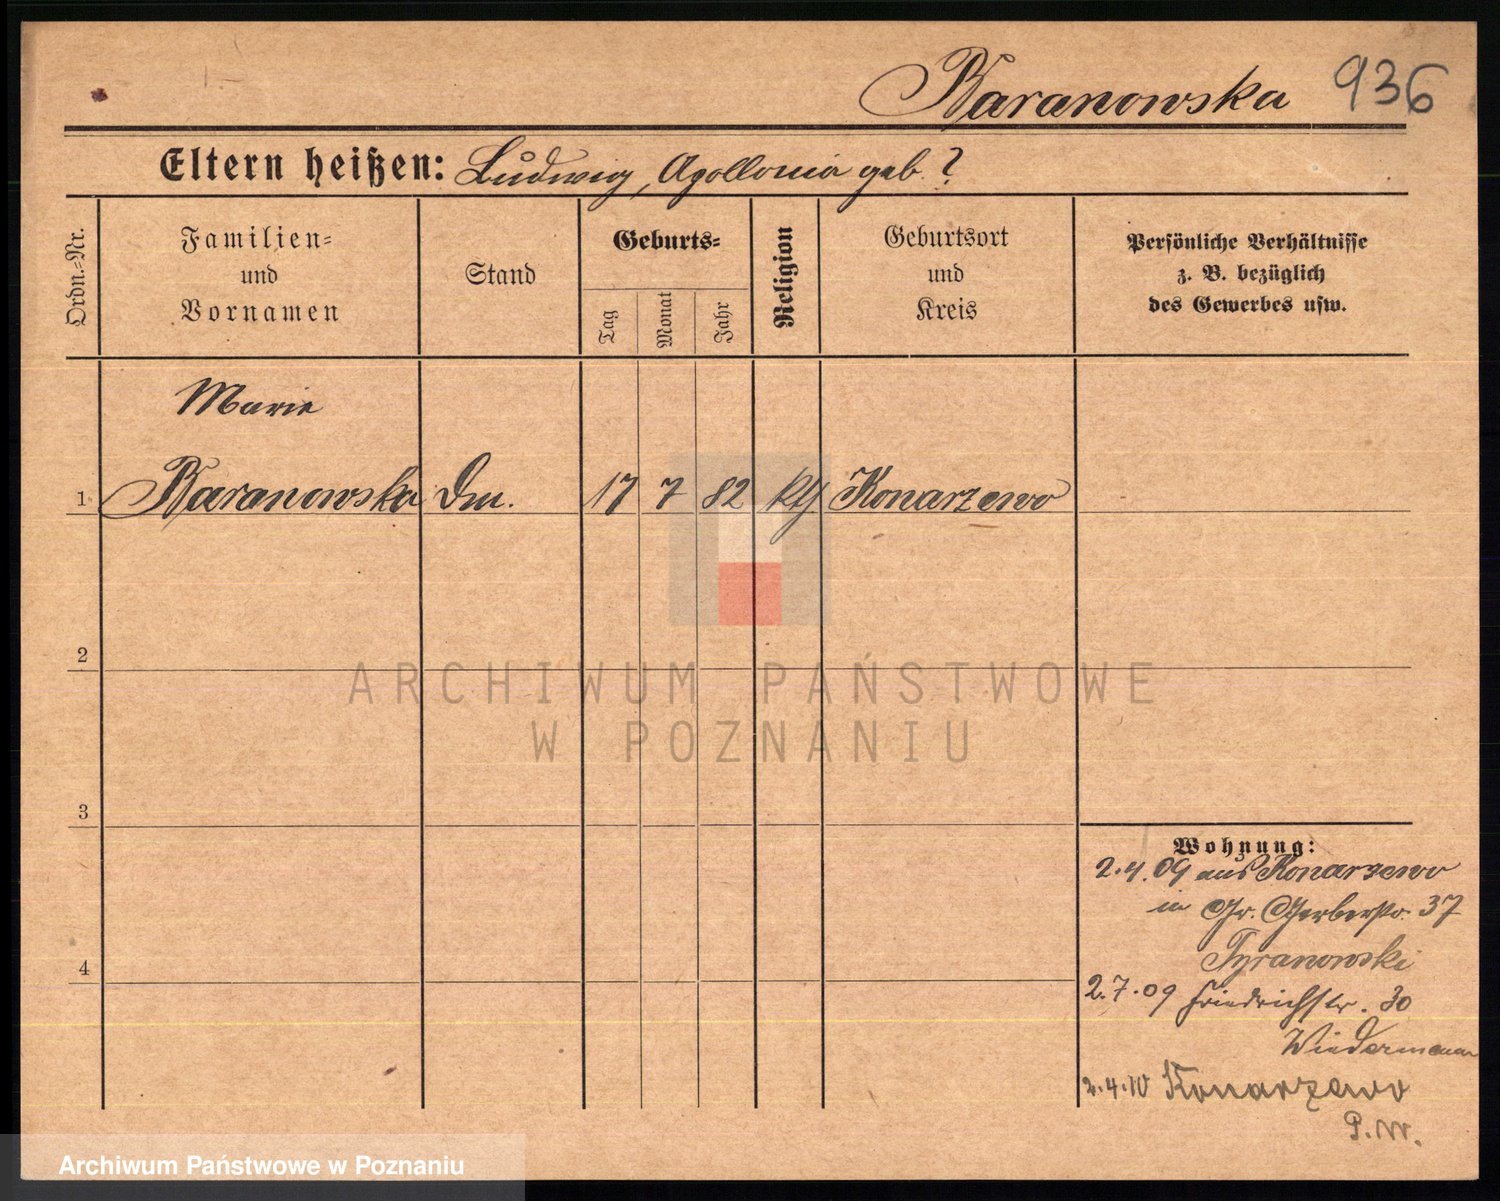 Baranowska 936
Eltern heißen: Ludwig, Apollonia geb. ?
Ordn.=Nr.
Familien=
und
Vornamen
Stand
Geburts=
Tag
Monat
Jahr
Religion
Geburtsort
und
Kreis
Persönliche Verhältnisse
z. B. bezüglich
des Gewerbes usw.
Marie
1 Baranowska Dm. 17 7 82 kth Konarzewo
2
ARCHIWUM PAŃSTWOWE
W POZNANIU
3
Wohnung:
2.4.09 aus Konarzewo
in Gr. Gerberstr. 37
Tyranowski
4
2.7.09 Friedrichstr. 30
Wiedermann
2.4.10 Konarzewo
P.W.
Archiwum Państwowe w Poznaniu